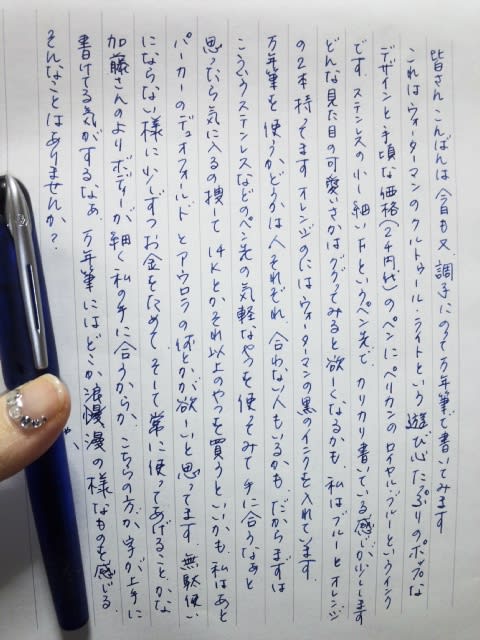 皆さん、こんばんは 今日も又、調子にのって万年筆で書いてみます
これはウォーターマンのクルトゥール・ライトという遊び心たっぷりのポップな
デザインと手頃な価格(2千円代)のペンにペリカンのロイヤル・ブルーというインク
です。ステンレスの少し細いFというペン先で、カリカリ書いている感じが少しします
どんな見た目の可愛いさかはググってみると欲しくなるかも、私はブルーとオレンジ
の2本持ってます オレンジのにはウォーターマンの黒のインクを入れています。
万年筆を使うかどうかは人それぞれ、合わない人もいるかも だからまずは
こういうステンレスなどのペン先の気軽なやつを使ってみて手に合うなぁと
思ったら気に入るの捜して 14Kとかそれ以上のやつを買うといいかも、私はあと
パーカーのデュオフォールドとアウロラの何とかが欲しいと思ってます。無駄使い
にならない様に少しずつお金をためて、そして常に使ってあげることかな
加藤さんのよりボディーが細く私の手に合うからか、こちらの方が字が上手に
書けてる気がするなぁ、万年筆にはどこか浪漫の様なものを感じる、
そんなことはありませんか?